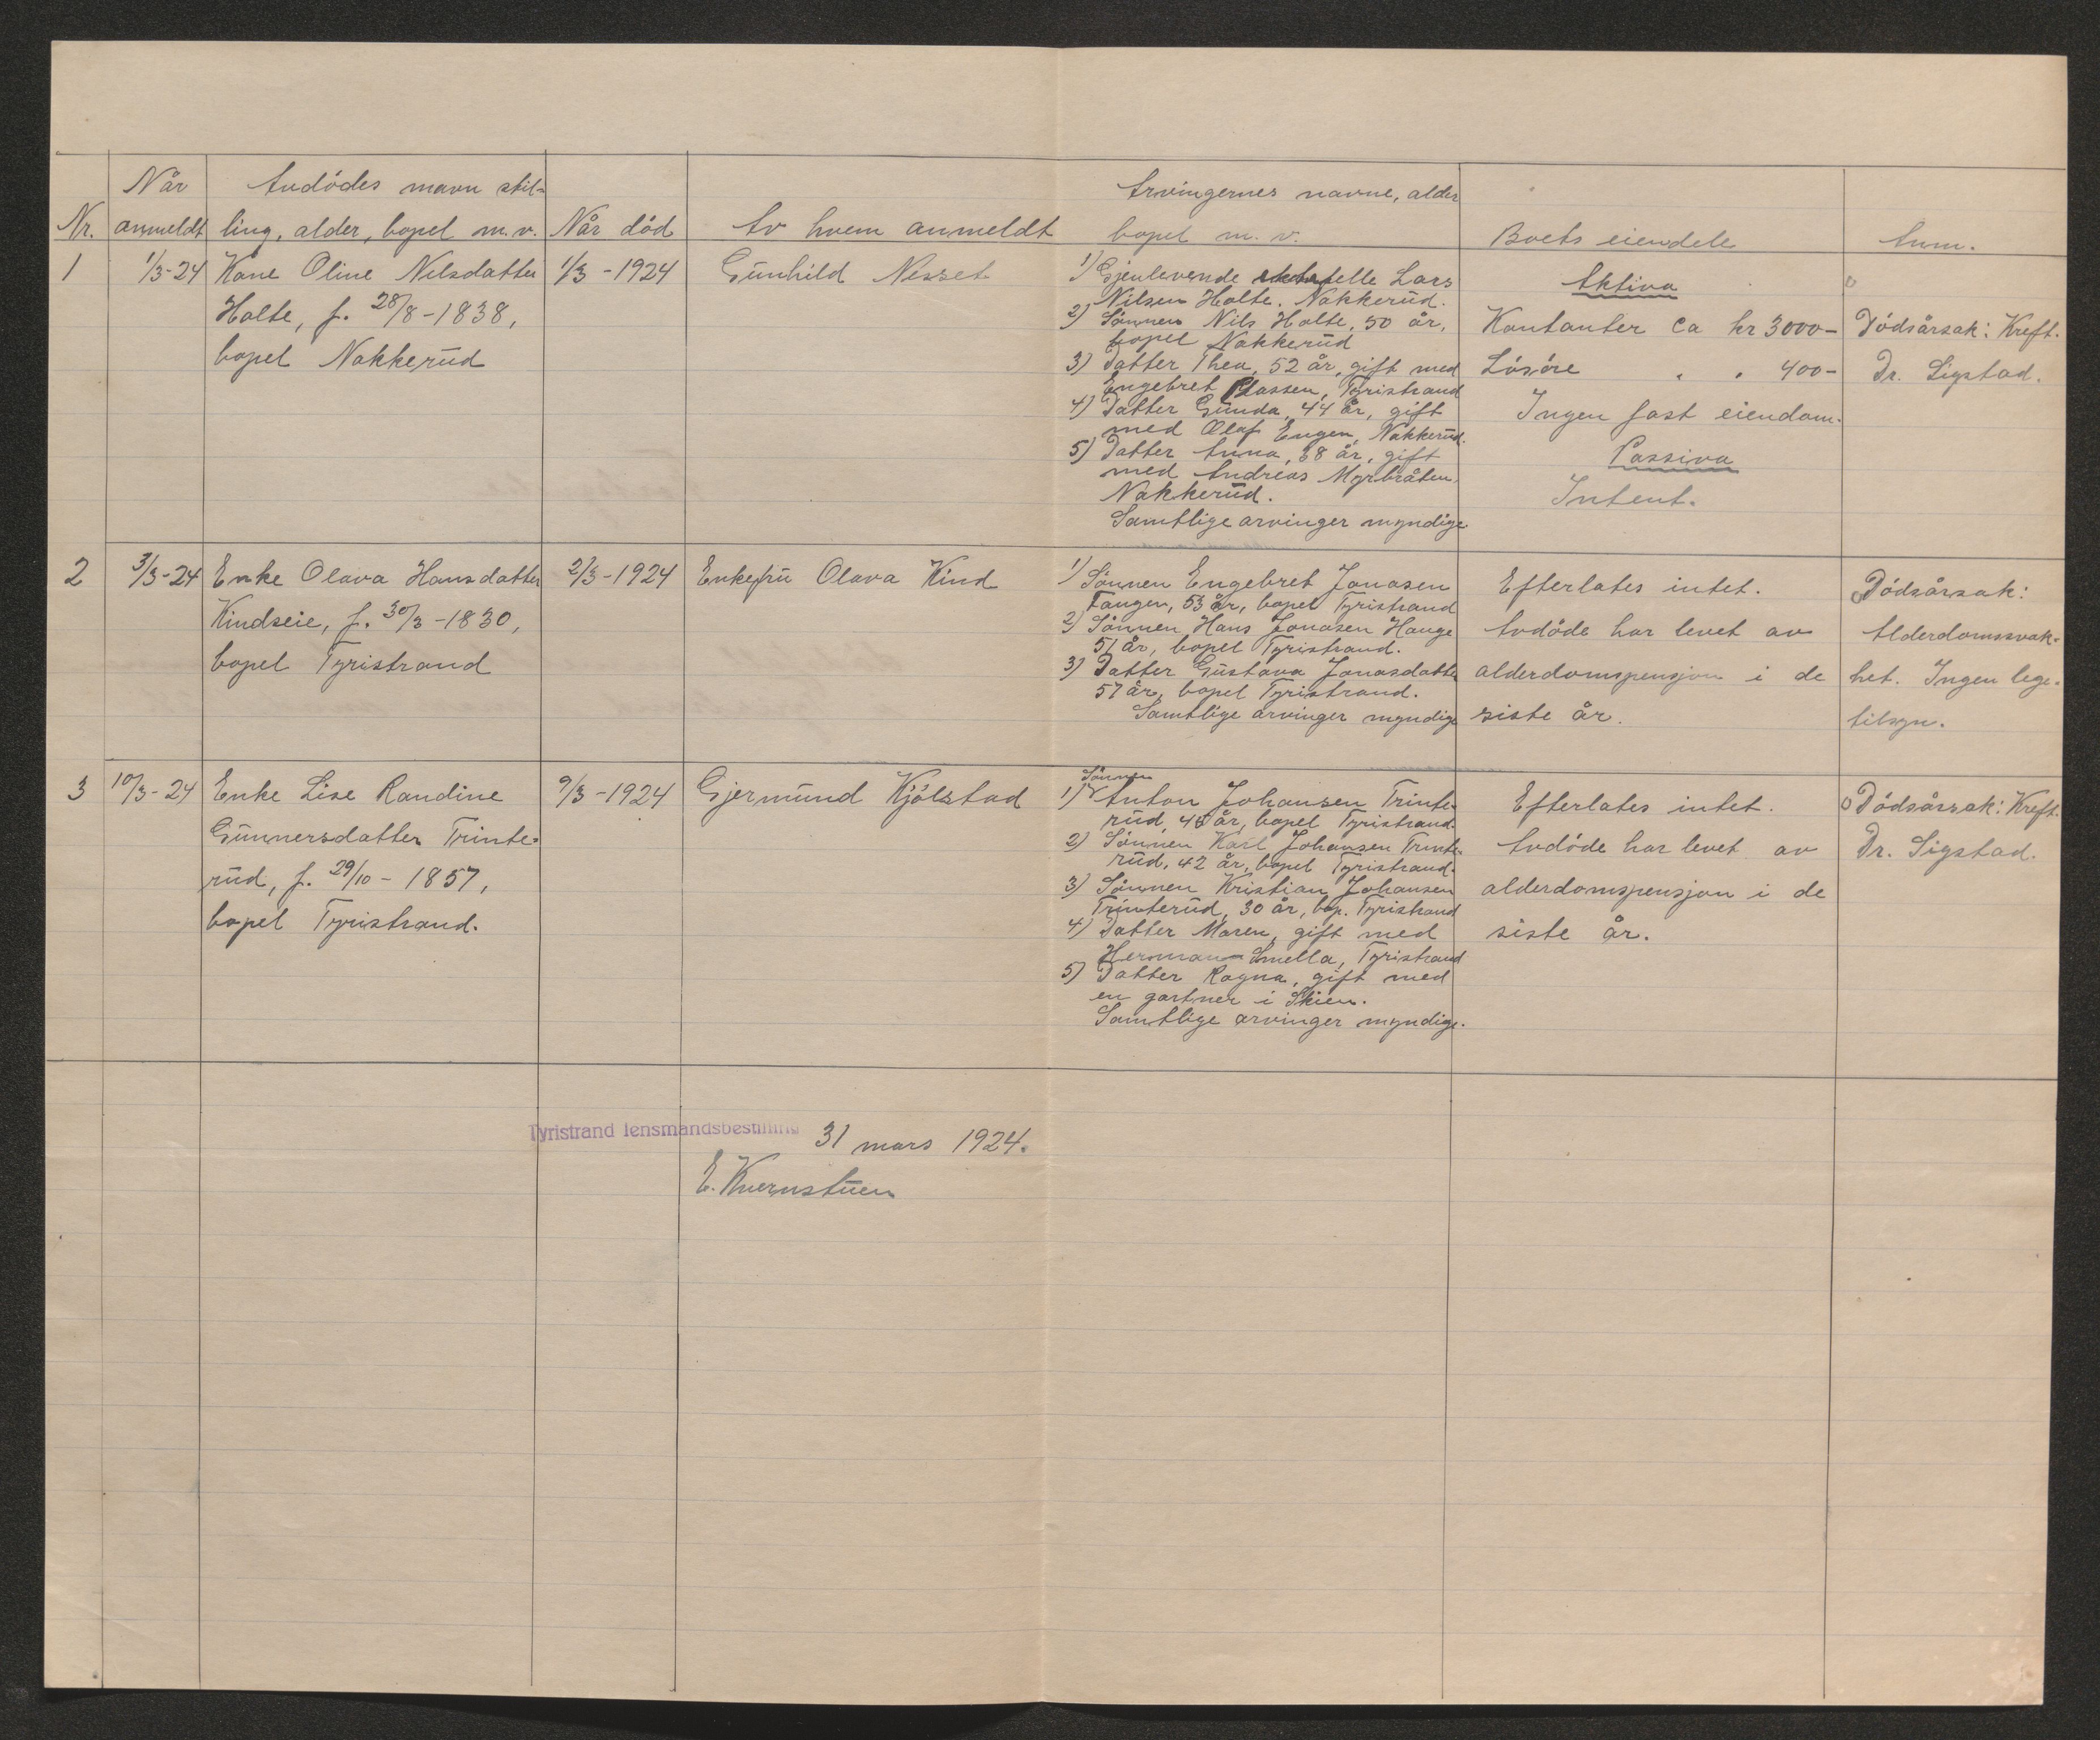 Når
anmeldt
Nr.
Avdödes navn stil-
ling, alder, bopel m.v.
Når död
Av hvem anmeldt
Arvingernes navne, alder
bopel m. v.
Boets eiendele
Anm.
1
1/3-24
Kone Oline Nilsdatter
Holte, f. 28/8-1838,
bopel Nakkerud
1/3 -1924
Gunhild Nesset
1) Gjenlevende ektefelle Lars
Nilsen Holte. Nakkerud.
2) Sönnen Nils Holte, 50 år,
bopel Nakkerud
3) Datter Thea, 52 år, gift med
Engebret Classen, Tyristrand
4) Datter Gunda, 44 år, gift
med Olaf Engen, Nakkerud.
5) Datter Anna, 38 år, gift
med Andreas Myrbråten,
Nakkerud.
Samtlige arvinger myndige
Aktiva
Kontanter ca kr 3000-
Lösöre " " 400-
Ingen fast eiendom.
Passiva
Intent.
Dödsårsak: Kreft.
Dr. Sigstad.
2
3/3-24
Enke Olava Hansdatter
Kindseie, f. 30/3-1830,
bopel Tyristrand
2/3-1924
Enkefru Olava Kind
1) Sönnen Engebret Jonasen
Tangen, 53 år, bopel Tyristrand
2) Sönnen Hans Jonasen Hauge
51 år, bopel Tyristrand.
3) Datter Gustava Jonasdatter
57 år, bopel Tyristrand.
Samtlige arvinger myndige
Efterlates intet.
Avdöde har levet av
alderdomspensjon i de
siste år.
Dödsårsak:
Alderdomssvak-
het. Ingen lege-
tilsyn.
3
10/3-24
Enke Lise Randine
Gunnersdatter Trinte-
rud, f. 29/10 - 1857,
bopel Tyristrand.
9/3 -1924
Gjermund Kjölstad
Sönnen
1) Anton Johansen Trinte-
rud, 45 år, bopel Tyristrand.
2) Sönnen Karl Johansen Trinte-
rud, 42 år, bopel Tyristrand.
3) Sönnen Kristian Johansen
Trinterud, 30 år, bop. Tyristrand
4) Datter Maren, gift med
Herman Smella, Tyristrand
5) Datter Ragna, gift med
en gartner i Skien.
Samtlige arvinger myndige.
Efterlates intet.
Avdöde har levet av
alderdomspensjon i de
siste år.
Dödsårsak: Kreft.
Dr. Sigstad.
Tyristrand lensmandsbestilling 31 mars 1924.
E. Kvernstuen